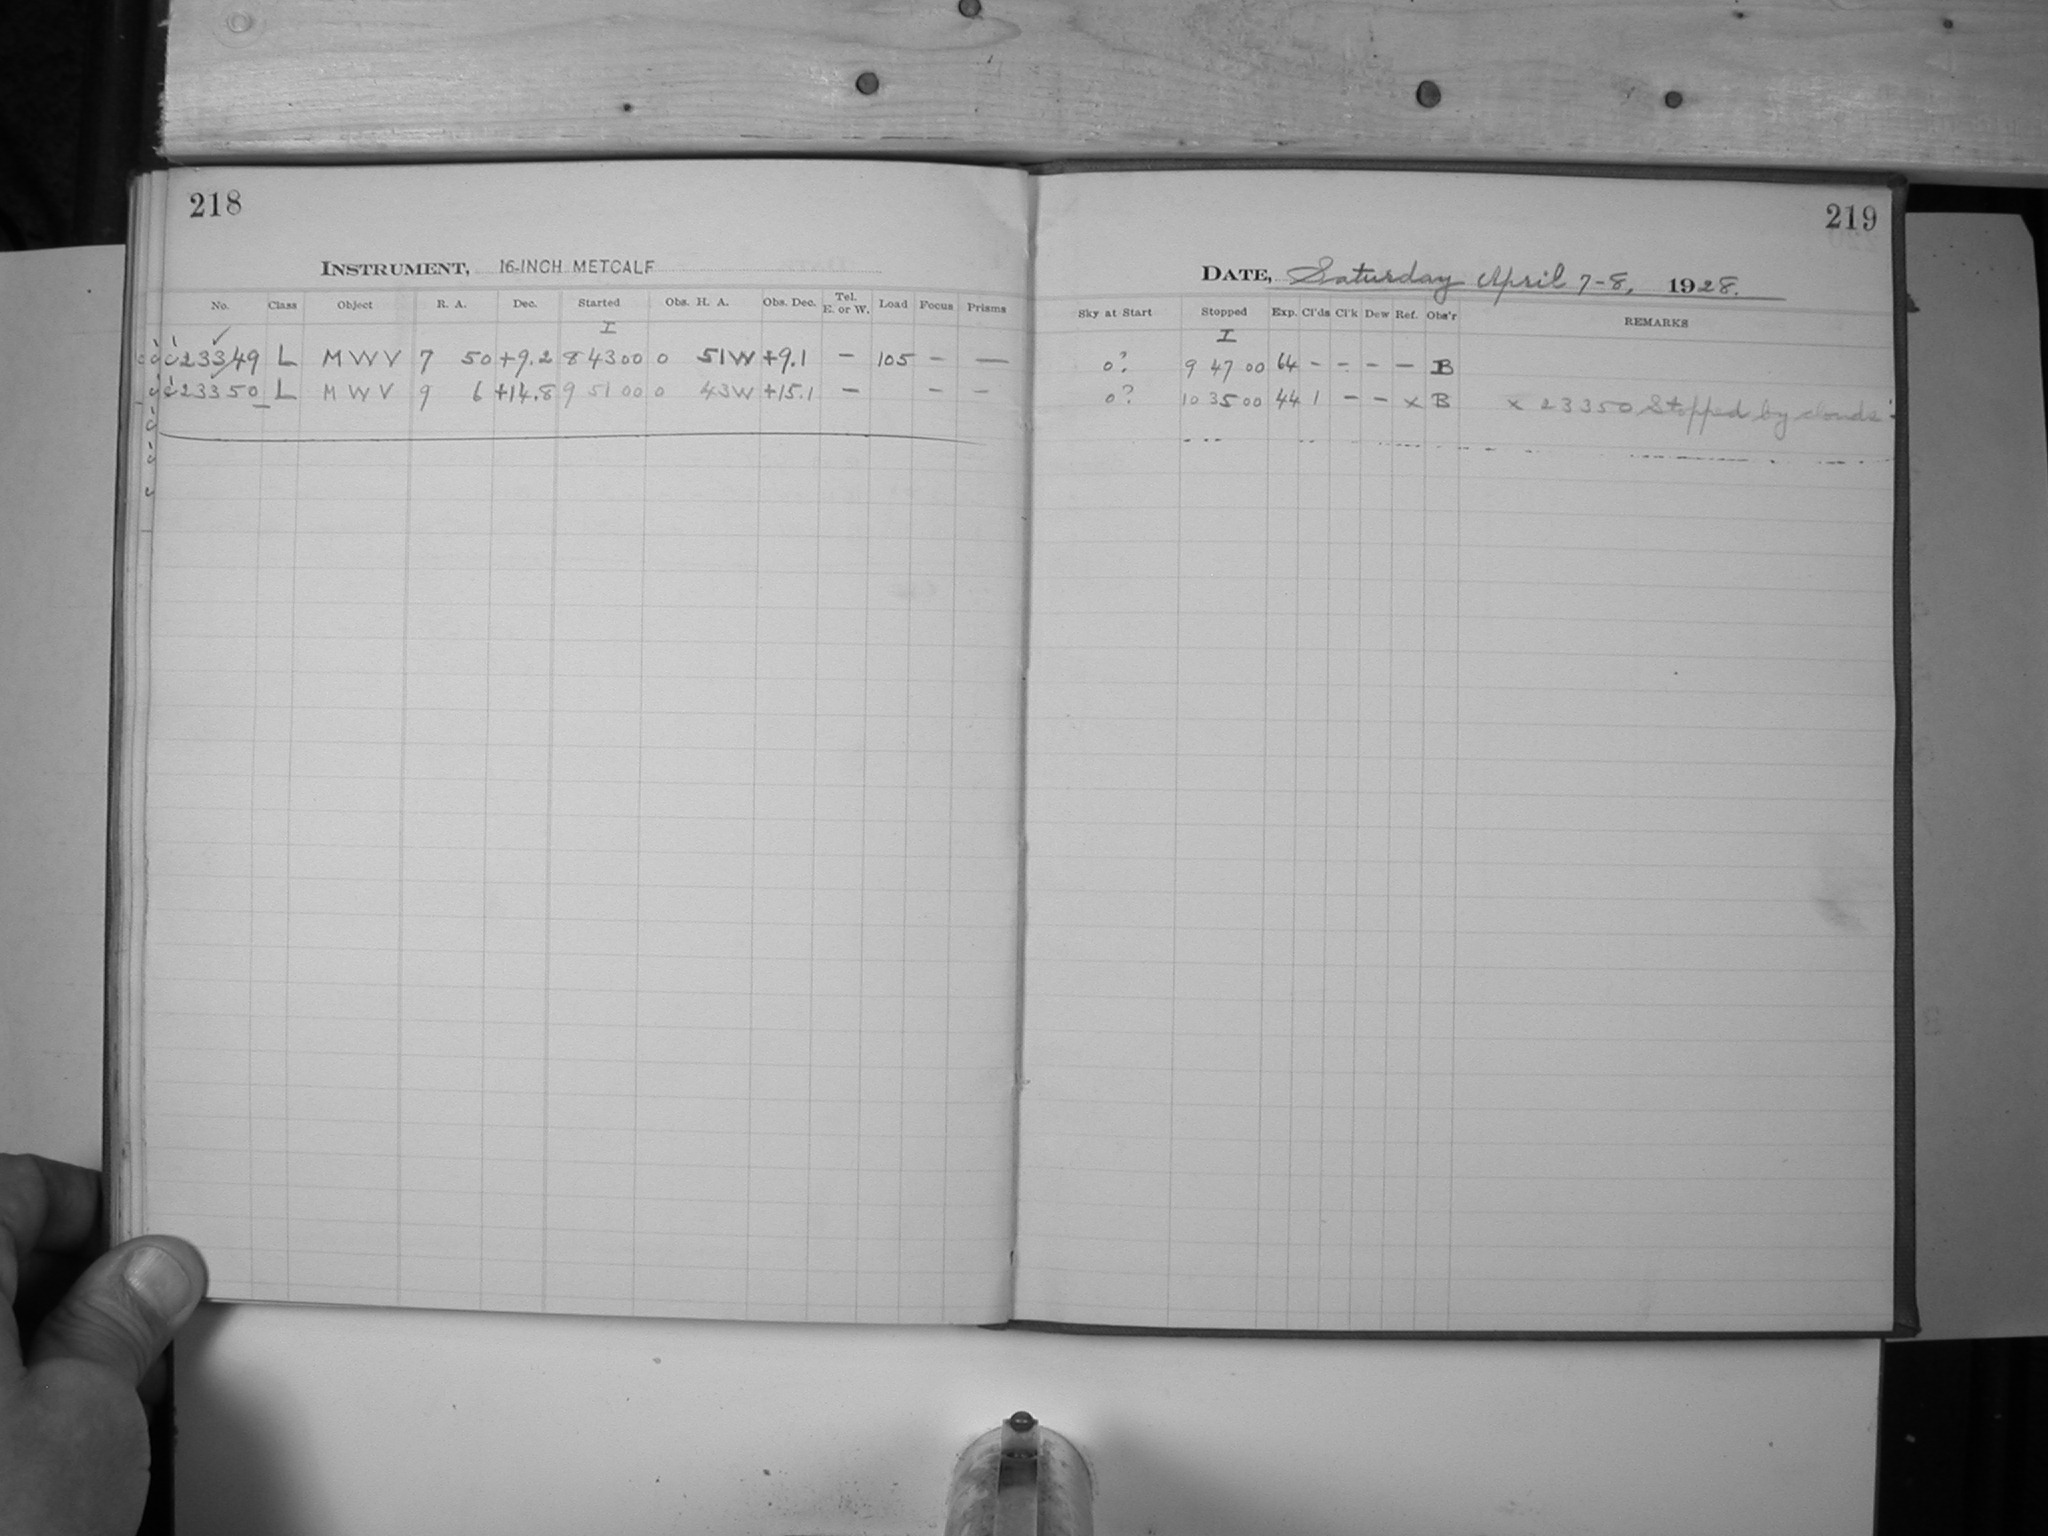 218
INSTRUMENT, 16-INCH METCALF
No. Class Object R. A. Dec. Started Obs. H. A. Obs. Dec. Tel. E. or W. Load Focus Prisms
I
23349 L M W V 7 50 +9.2 8 43 00 0 51W +9.1 — 105 — —
23350 L M W V 9 6 +14.8 9 51 00 0 43W +15.1 — — —
219
DATE, Saturday April 7-8, 1928.
Sky at Start Stopped Exp. Cl'ds Cl'k Dew Ref. Obs'r REMARKS
I
0? 9 47 00 64 — — — — B
0? 10 35 00 44 1 — — x B x 23350 Stopped by clouds